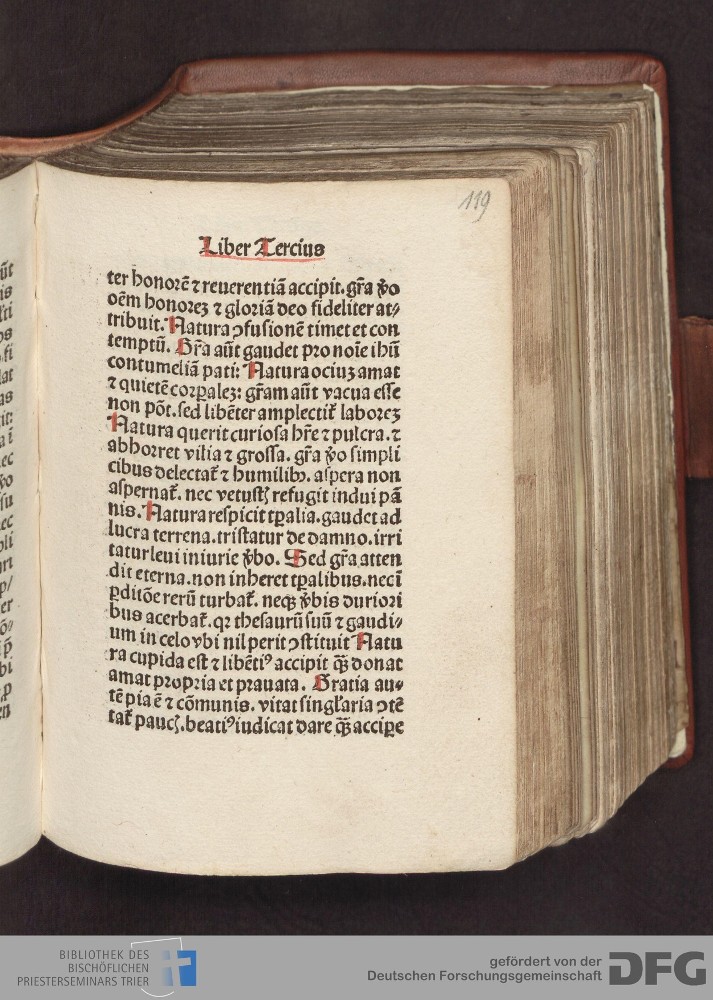 119
Liber Tercius
ter honorē ⁊ reuerentiā accipit. gr̄a ꝟo
oēm honorez ⁊ gloriā deo fideliter at⸗
tribuit. Natura ↄfusionē timet et con
temptū. Gr̄a aūt gaudet pro noīe ihū
contumeliā pati: Natura ociuz amat
⁊ quietē corꝑalez: gr̄am aūt vacua esse
non pōt. sed libēter amplectit̄ laborez
Natura querit curiosa hr̄e ⁊ pulcra. ⁊
abhorret vilia ⁊ grossa. gr̄a ꝟo simpli
cibus delectat̄ ⁊ humilibꝫ. aspera non
aspernat̄. nec vetustꝭ refugit indui pā
nis. Natura respicit tꝑalia. gaudet ad
lucra terrena. tristatur de damno. irri
tatur leui iniurie ꝟbo. Sed gr̄a atten
dit eterna. non inheret tꝑalibus. nec ī
ꝑditōe rerū turbat̄. neqꝫ ꝟbis duriori
bus acerbat̄. qꝛ thesaurū suū ⁊ gaudi⸗
um in celo vbi nil perit ↄstituit Natu
ra cupida est ⁊ libētiꝰ accipit qꝫ̄ donat
amat propria et prauata. Gratia au⸗
tē pia ē ⁊ cōmunis. vitat singl̄aria ↄtē
tat̄ paucꝭ. beatiꝰ iudicat dare qꝫ̄ accipe
ūt
is
BIBLIOTHEK DES
BISCHÖFLICHEN
PRIESTERSEMINARS TRIER
gefördert von der
Deutschen Forschungsgemeinschaft
DFG